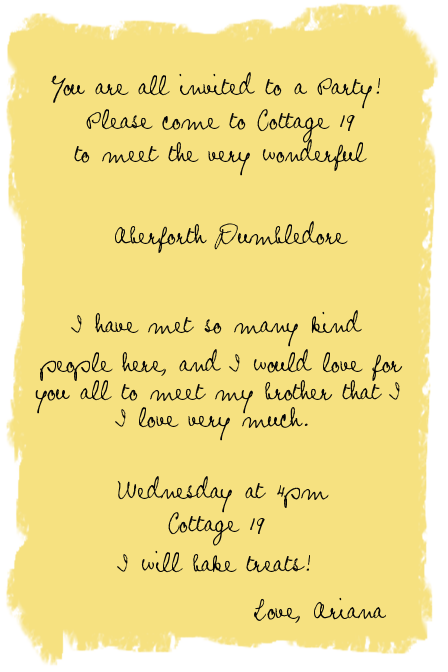 You are all invited to a Party!
Please come to Cottage 19
to meet the very wonderful
Aberforth Dumbledore
I have met so many kind
people here, and I would love for
you all to meet my brother that I
I love very much.
Wednesday at 4pm
Cottage 19
I will bake treats!
Love, Ariana